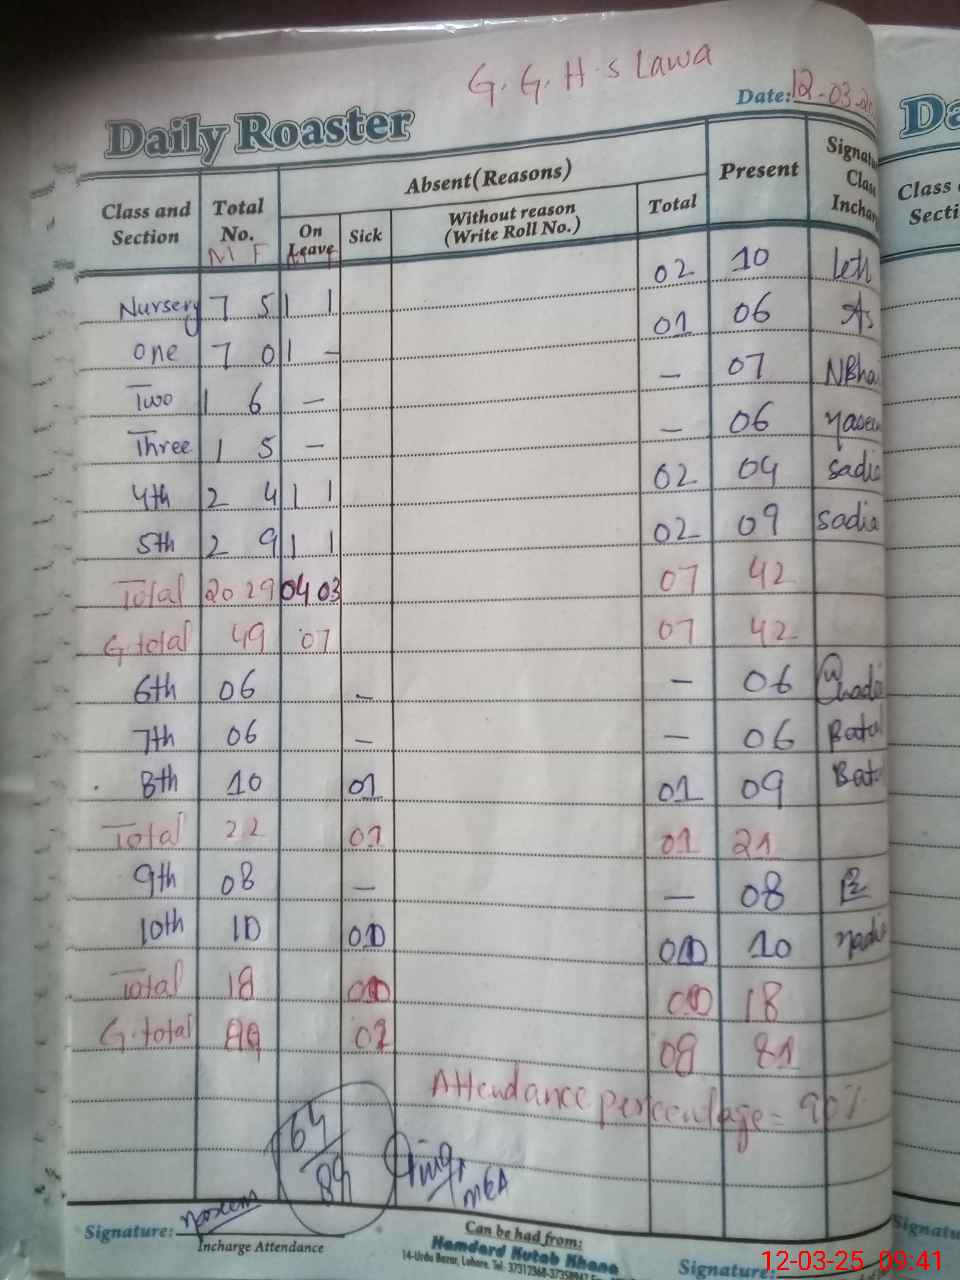 G.G.H.S Lawa
Date: 12-03-2
Daily Roaster
Class and Section Total No. Absent(Reasons) Present Signatu Clas Inchar
On Leave Sick Without reason (Write Roll No.) Total
M F
Nursery 7 5 1 1 02 10
one 7 0 1 - 01 06 As
Two 1 6 - - 07 NBha
Three 1 5 - - 06
4th 2 4 1 1 02 04 sadia
5th 2 9 1 1 02 09 sadia
Total 20 29 04 03 07 42
G.total 49 07 07 42
6th 06 - - 06
7th 06 - - 06 Batul
8th 10 01 01 09 Batu
Total 22 01 01 21
9th 08 - - 08
10th 10 10
Total 18 18
G.total 08 81
Attendance percentage = 90%
64/89
MEA
Signature:
Incharge Attendance
Can be had from:
Hamdard Kutab Khana
14-Urdu Bazar, Lahore. Tel: 37312368-37358947
Signature:
Da
Class
Secti
Signatu
12-03-25 09:41